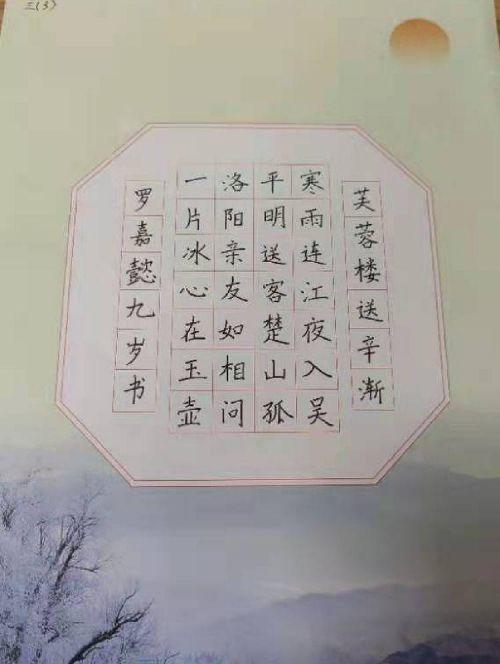 三(3)
芙蓉楼送辛渐
寒雨连江夜入吴
平明送客楚山孤
洛阳亲友如相问
一片冰心在玉壶
罗嘉懿九岁书